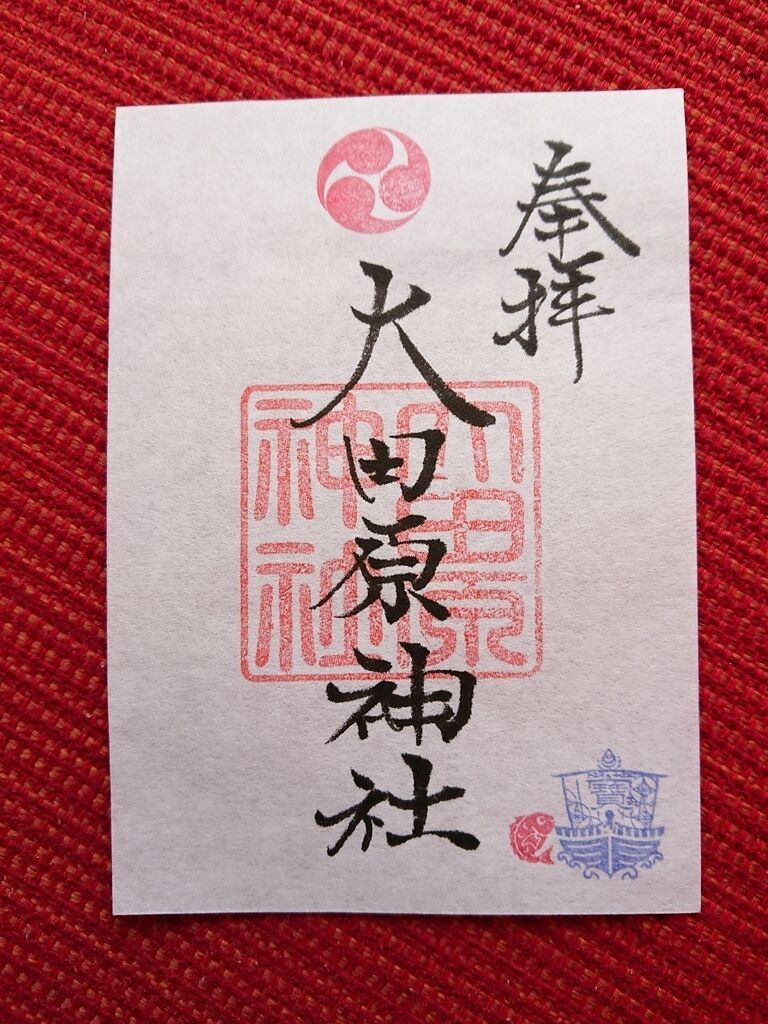 奉拝
大田原神社
大田原
神社
寶